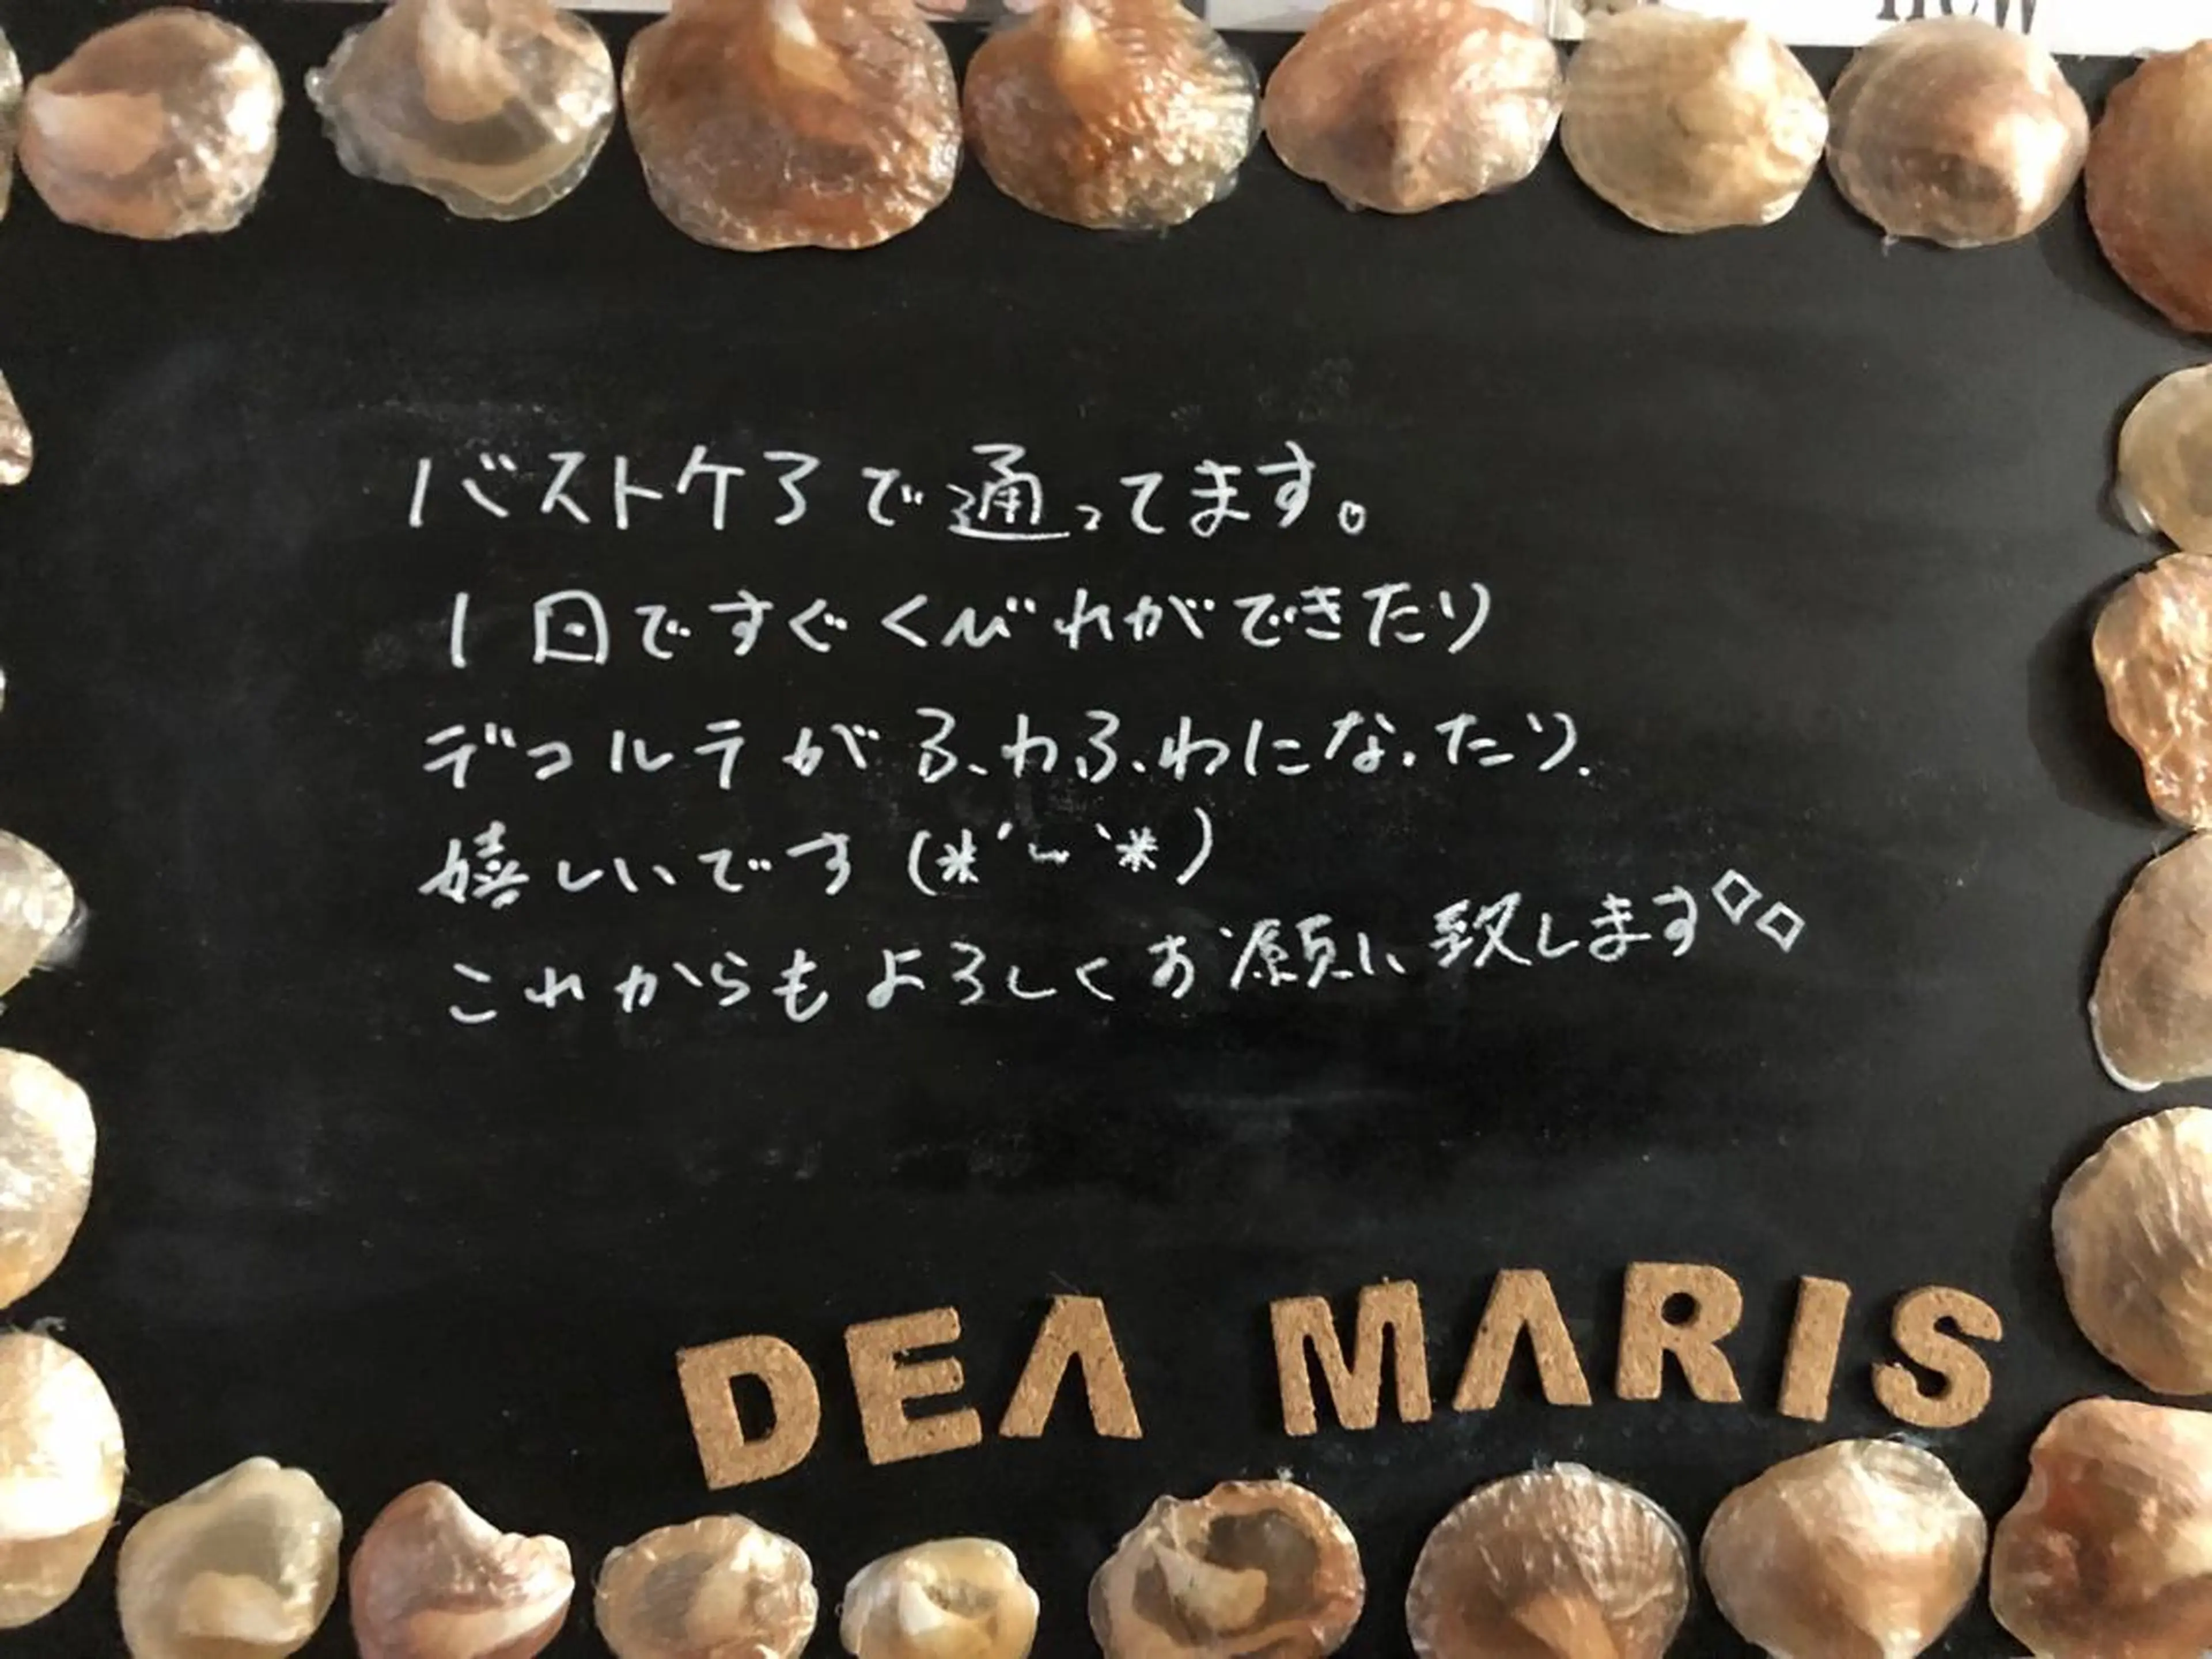 new
バストケアで通ってます。
1回ですぐくびれができたり
デコルテがふわふわになったり.
嬉しいです(*´~`*)
これからもよろしくお願い致します◇◇
DEA MARIS